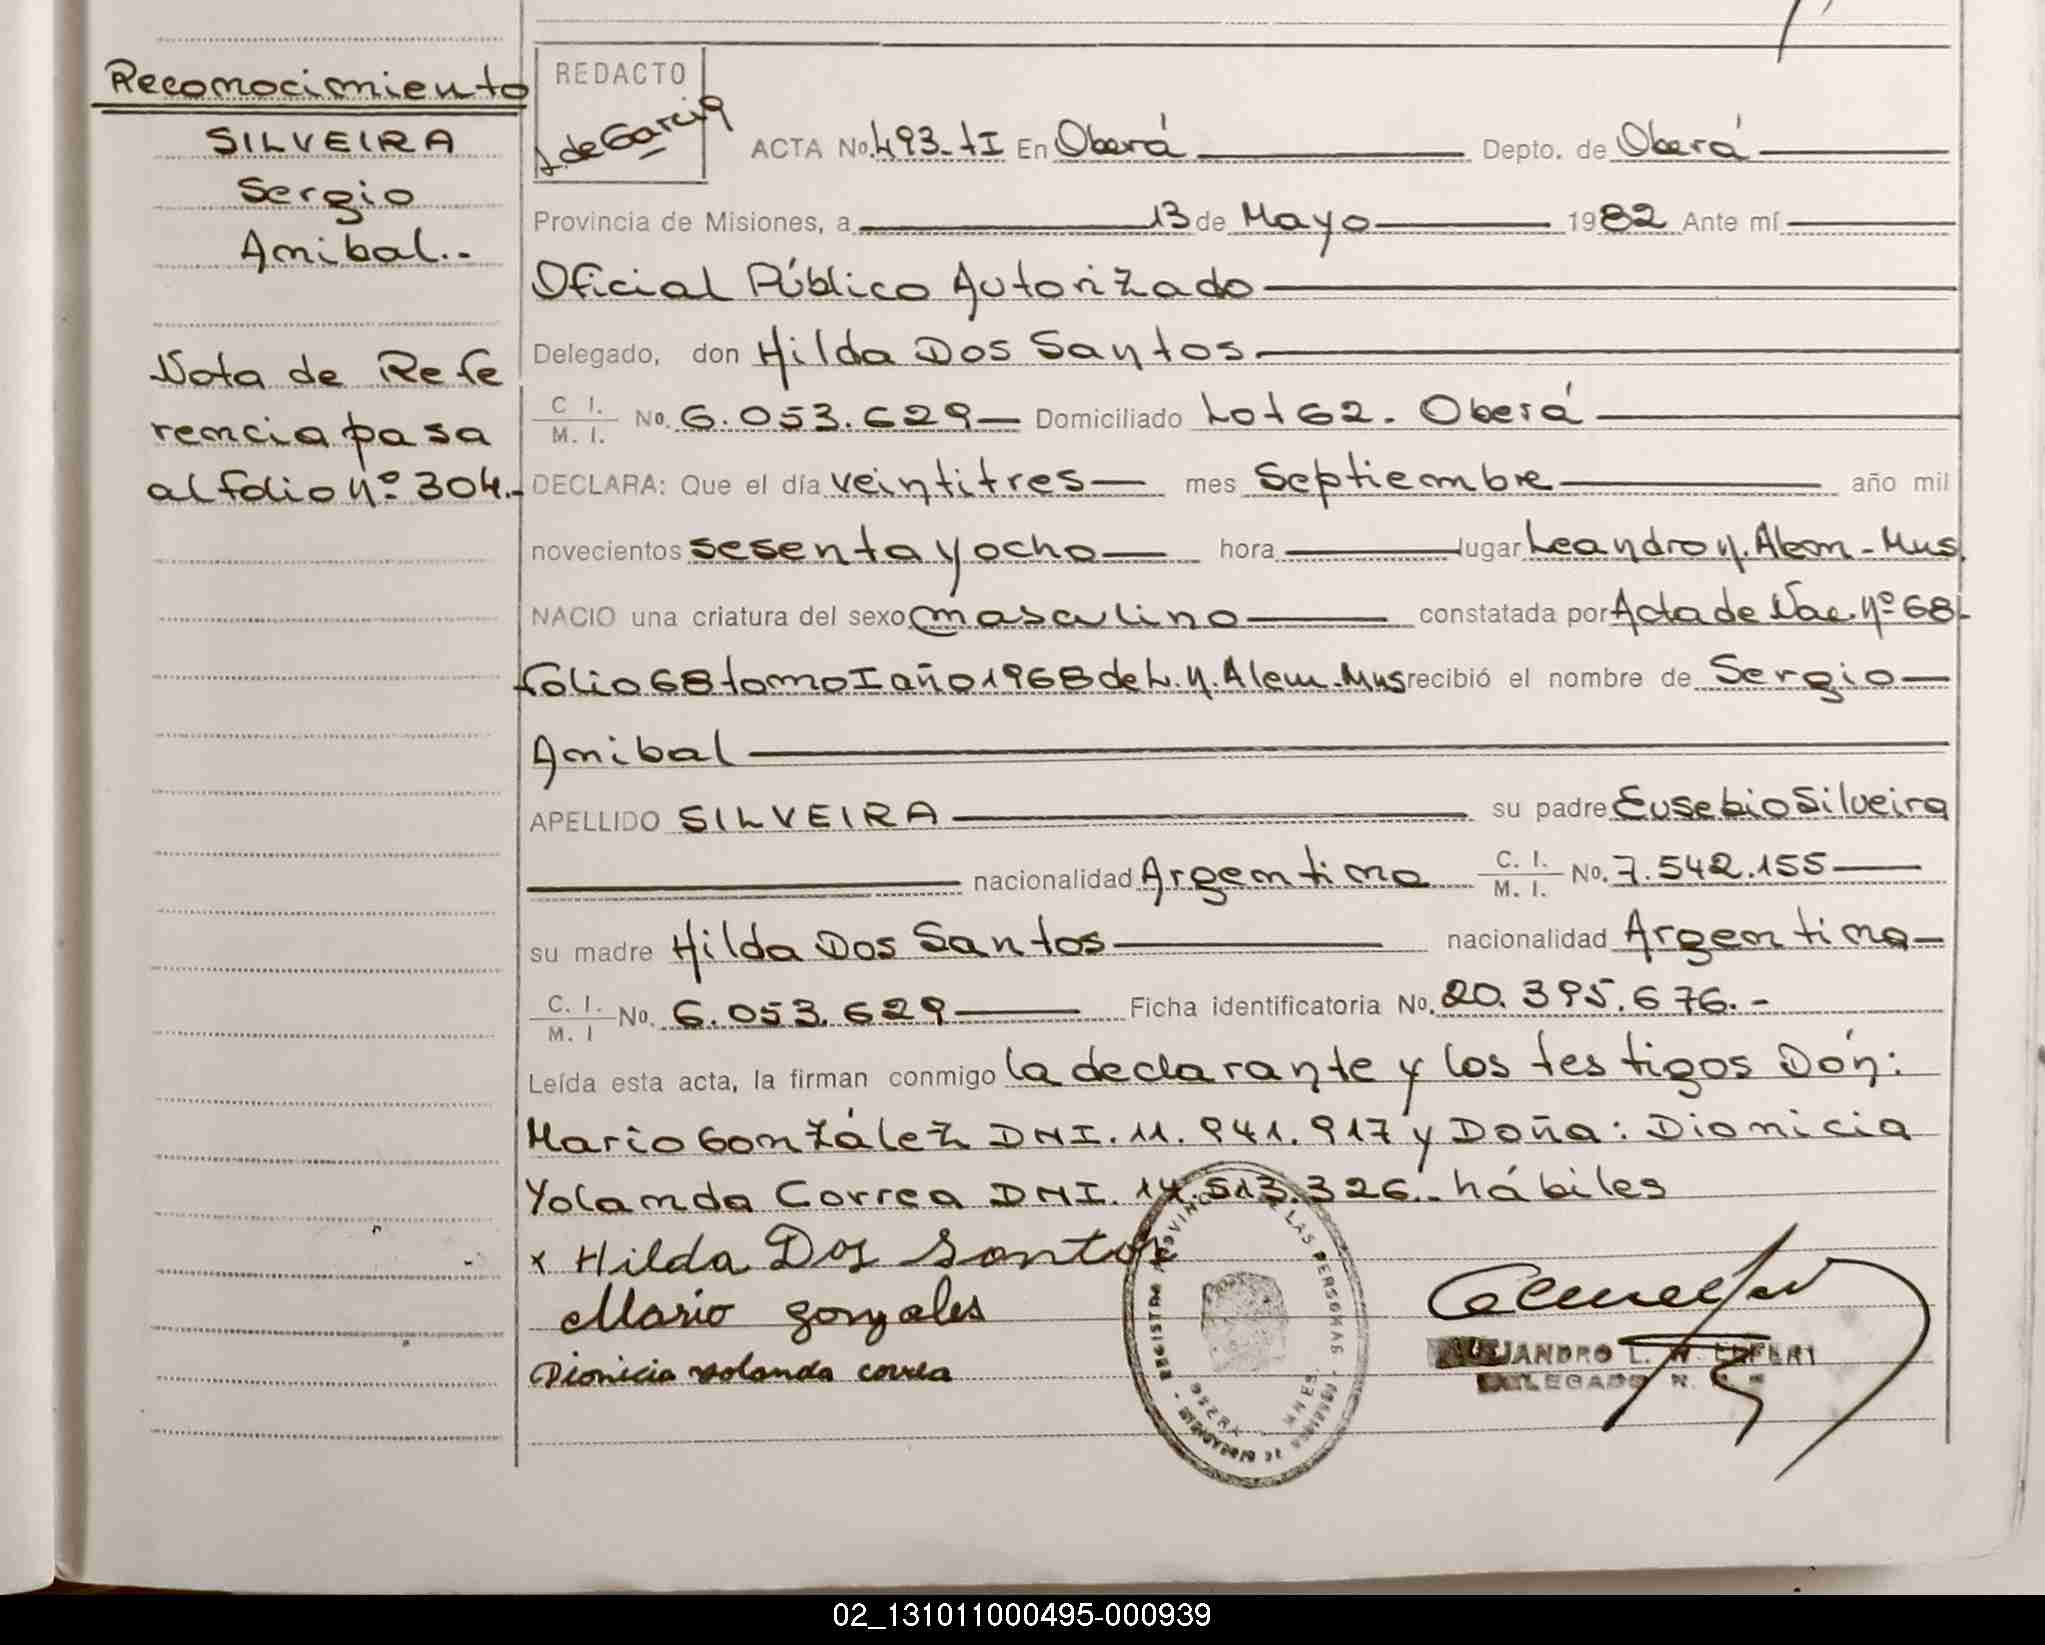 Reconocimiento
SILVEIRA
Sergio
Anibal.-
Nota de Refe
rencia pasa
al folio nº 304.-
REDACTO
de Garcia
ACTA No. 493-tI En Oberá Depto. de Oberá
Provincia de Misiones, a 13 de Mayo 1982 Ante mí
Oficial Público Autorizado
Delegado, don Hilda Dos Santos
C I. / M. I. No. 6.053.629 Domiciliado Lot 62. Oberá
DECLARA: Que el día veintitres mes Septiembre año mil
novecientos sesenta y ocho hora lugar Leandro N. Alem - Mns.
NACIO una criatura del sexo masculino constatada por Acta de Nac. nº 68-
folio 68 tomo I año 1968 de L. N. Alem. Mns recibió el nombre de Sergio
Anibal
APELLIDO SILVEIRA su padre Eusebio Silveira
nacionalidad Argentina C. I. / M. I. No. 7.542.155
su madre Hilda Dos Santos nacionalidad Argentina
C. I. / M. I No. 6.053.629 Ficha identificatoria No. 20.395.676.-
Leída esta acta, la firman conmigo la declarante y los testigos Dón:
Mario González DNI. 11.941.917 y Doña: Dionicia
Yolanda Correa DNI. 14.513.326.- hábiles
x Hilda Dos Santos
Mario gonzales
Dionicia Yolanda correa
REGISTRO PROVINC LAS PERSONAS
OBERA
ALEJANDRO L. N.
DELEGADO
02_131011000495-000939